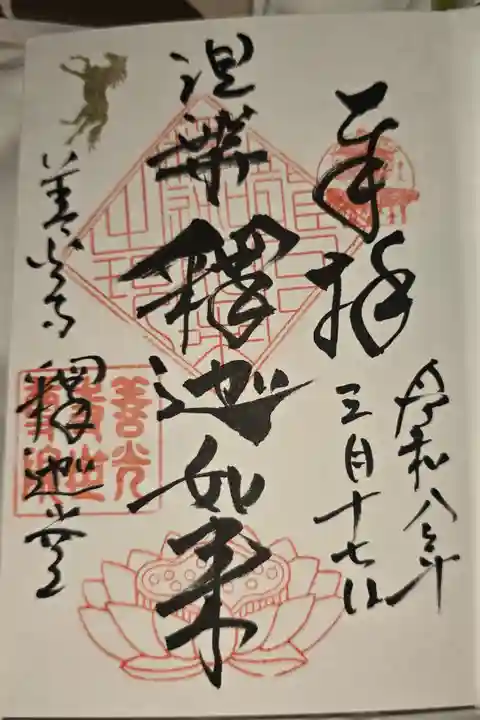 奉拝
令和八年
三月十七日
涅槃釋迦如来
善光寺 釋迦堂